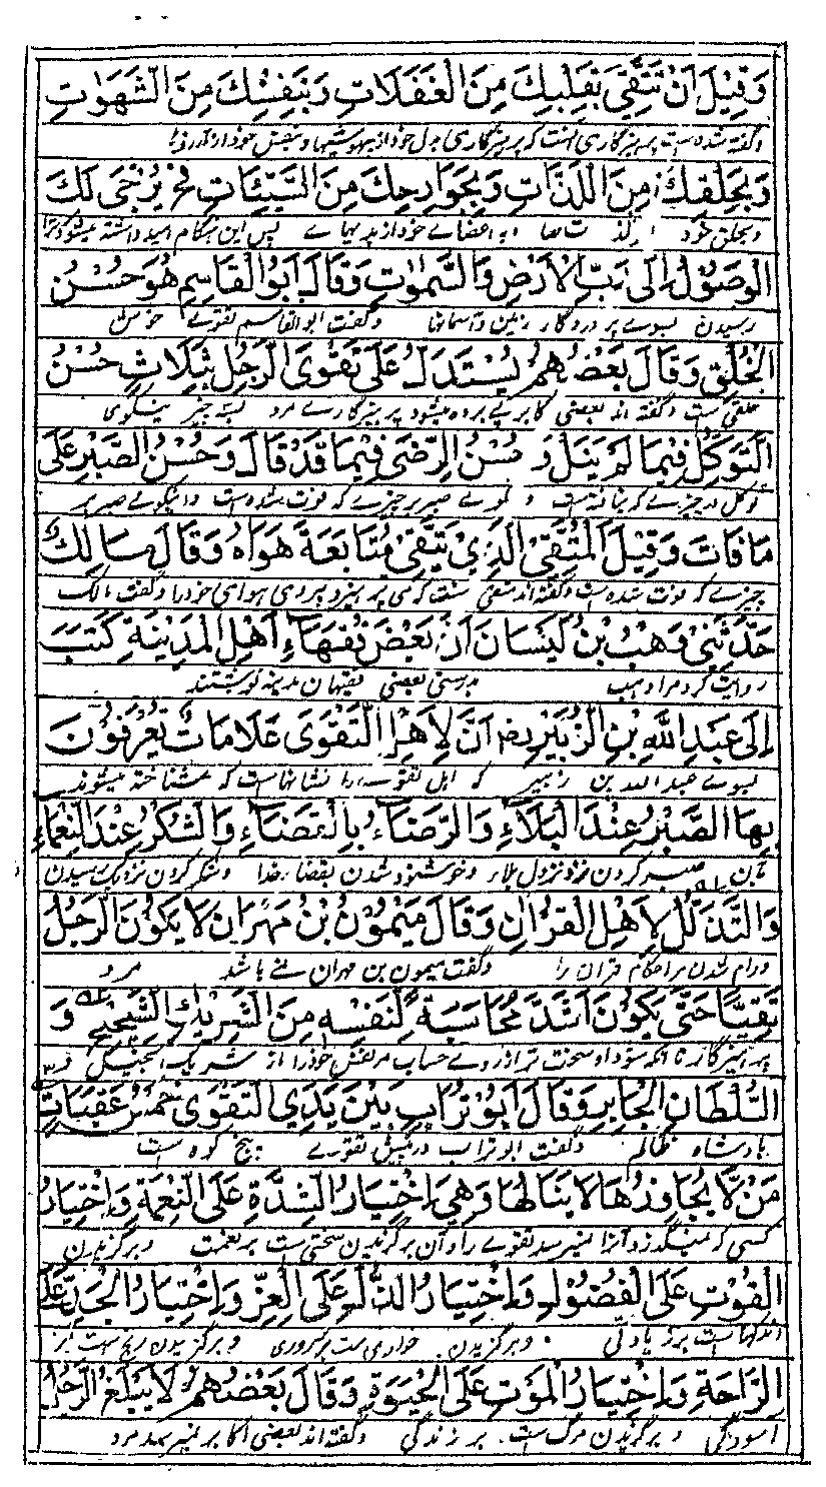 وَقِيْلَ اَنْ تَتَّقِيَ بِقَلْبِكَ مِنَ الْغَفَلَاتِ وَبِنَفْسِكَ مِنَ الشَّهَوٰتِ
وگفته شده است پرهیزگاری آنست که پرهیزگاری بدل خود از بیهوشیها و بنفس خود از آرزوها
وَبِحَلْقِكَ مِنَ اللَّذَّاتِ وَبِجَوَارِحِكَ مِنَ السَّيِّئَاتِ فَحِ يُرْجٰى لَكَ
وبحلق خود از لذتها وبه اعضائے خود از بدیهاے پس این هنگام امید داشته میشود ترا
الْوُصُوْلُ اِلٰى رَبِّ الْاَرْضِ وَالسَّمٰوٰتِ وَقَالَ اَبُوْ الْقَاسِمِ هُوَ حُسْنُ
رسیدن بسوے پروردگار زمین وآسمانها وگفت ابوالقاسم تقوے خوش
الْخُلُقِ وَقَالَ بَعْضُهُمْ يُسْتَدَلُّ عَلٰى تَقْوَى الرَّجُلِ بِثَلَاثٍ حُسْنُ
خلقی است وگفته اند بعضی اکابر پے برده میشود بر پرهیزگارے مرد بسه چیز نیکوی
التَّوَكُّلِ فِيْمَا لَمْ يَنَلْ وَحُسْنُ الرِّضٰى فِيْمَا قَدْ نَالَ وَحُسْنُ الصَّبْرِ عَلٰى
توکل در چیزے که نیافته است و صبر بر چیزے که فوت شده است ونیکوے صبر بر
مَا فَاتَ وَقِيْلَ الْمُتَّقِيْ الَّذِيْ يَتَّقِيْ مُتَابَعَةَ هَوَاهُ وَقَالَ مَالِكٌ
چیزے که فوت شده است وگفته اند متقی شخصے که می پرهیزد پیروی هوای خود را وگفت مالک
حَدَّثَنِيْ وَهْبُ بْنُ كَيْسَانَ اَنَّ بَعْضَ فُقَهَاءِ اَهْلِ الْمَدِيْنَةِ كَتَبَ
روایت کرد مرا وهب بدرستی بعضی فقیهان مدینه نوشتند
اِلٰى عَبْدِ اللّٰهِ بْنِ الزُّبَيْرِ رض اَنَّ لِاَهْلِ التَّقْوٰى عَلَامَاتٌ يُعْرَفُوْنَ
بسوے عبد الله بن زبیر که اهل تقوے را نشانهاست که شناخته میشوند
بِهَا الصَّبْرُ عِنْدَ الْبَلَاءِ وَالرِّضَاءُ بِالْقَضَاءِ وَالشُّكْرُ عِنْدَ النَّعْمَاءِ
بآن صبر کردن نزد نزول بلا و خوشنود شدن بقضاء خدا وشکر کردن نزدیک رسیدن
وَالتَّذَلُّلُ لِاَهْلِ الْقُرْاٰنِ وَقَالَ مَيْمُوْنُ بْنُ مِهْرَانَ لَا يَكُوْنُ الرَّجُلُ
ورام شدن براحکام قرآن را وگفت میمون بن مهران نمے باشد مرد
تَقِيًّا حَتّٰى يَكُوْنَ اَشَدَّ مُحَاسَبَةً لِّنَفْسِهِ مِنَ الشَّرِيْكِ الشَّحِيْحِ وَ
پرهیزگار تا آنکه شود او سخت تر از روے حساب مر نفس خود را از شریک
السُّلْطَانِ الْجَابِرِ وَقَالَ اَبُوْ تُرَابٍ بَيْنَ يَدَيِ التَّقْوٰى خَمْسُ عَقَبَاتٍ
بادشاه ظالم وگفت ابو تراب در پیش تقوے پنج کوه است
مَنْ لَّا يُجَاوِزُهَا لَا يَنَالُهَا وَهِيَ اِخْتِيَارُ الشِّدَّةِ عَلَى النِّعْمَةِ وَاِخْتِيَارُ
کسی که نمیگذرد آنرا نمیرسد تقوے را وآن برگزیدن سختی است بر نعمت وبرگزیدن
الْقُوْتِ عَلَى الْفُضُوْلِ وَاِخْتِيَارُ الذُّلِّ عَلَى الْعِزِّ وَاِخْتِيَارُ الْجُهْدِ عَلَى
اندکهاست بر زیادتی وبرگزیدن خواری است بر سروری وبرگزیدن رنج است بر
الرَّاحَةِ وَاِخْتِيَارُ الْمَوْتِ عَلَى الْحَيٰوةِ وَقَالَ بَعْضُهُمْ لَا يَبْلُغُ الرَّجُلُ
آسودگی و برگزیدن مرگ است بر زندگی وگفته اند بعضی اکابر نمیرسد مرد